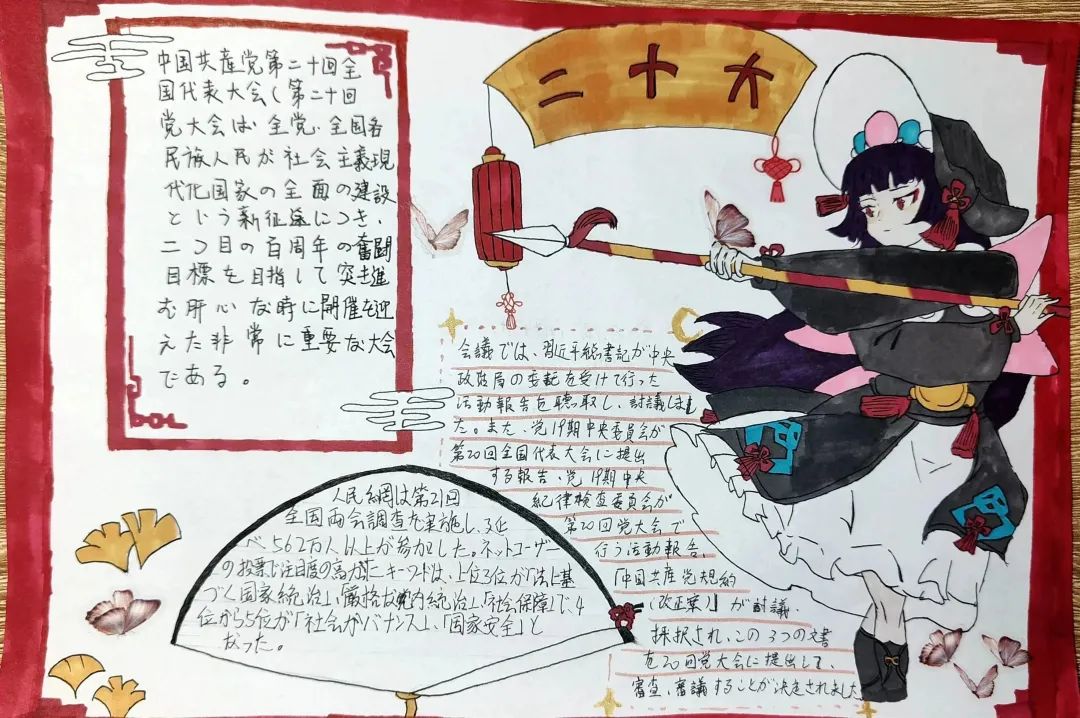 二十大
中国共産党第二十回全
国代表大会(第二十回
党大会は、全党、全国各
民族人民が社会主義現
代化国家の全面の建設
という新征途につき、
二つ目の百周年の奮闘
目標を目指して突き進
む肝心な時に開催を迎
えた非常に重要な大会
である。
会議では、習近平総書記が中央
政治局の委託を受けて行った
活動報告を聴取し、討議しまし
た。また、党19期中央委員会が
第20回全国代表大会に提出
する報告、党19期中央
紀律検査委員会が
第20回党大会で
行う活動報告、
「中国共産党規約
(改正案)」が討議
採択され、この3つの文書
を20回党大会に提出して、
審査、審議することが決定されました
人民網は第21回
全国両会調査を実施し、延
べ562万人以上が参加した。ネットユーザー
の投票で注目度の高かったキーワードは、上位3位が「法に基
づく国家統治」、「厳格な党内統治」、「社会保障」で、4
位から5位が「社会ガバナンス」、「国家安全」と
なった。